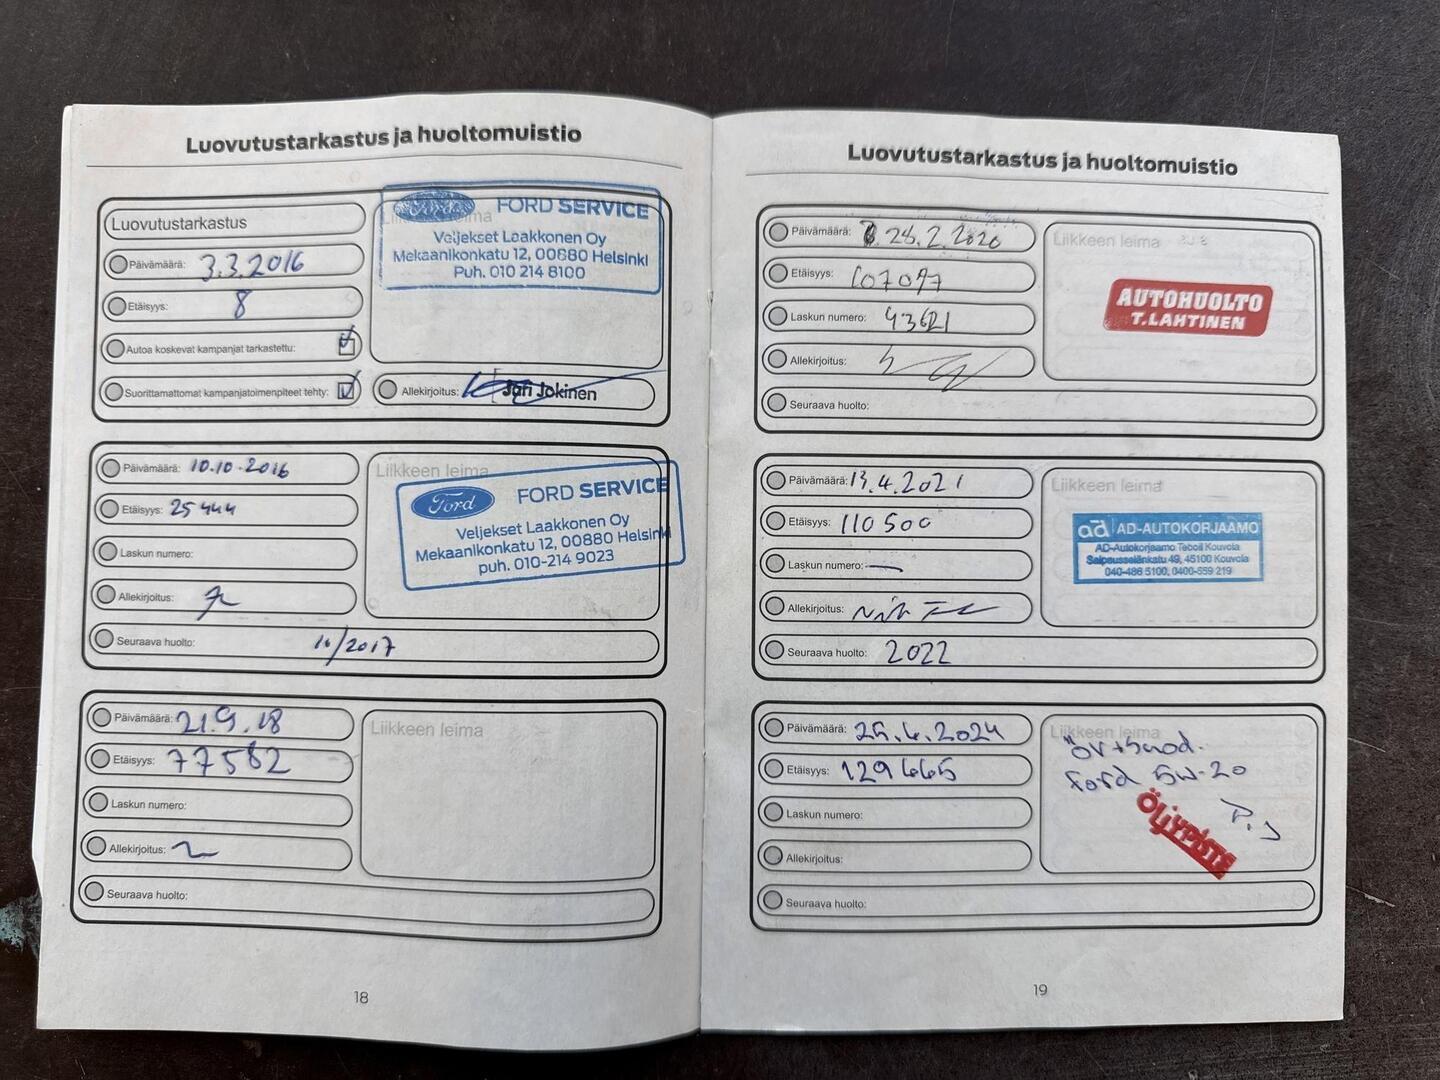 Luovutustarkastus ja huoltomuistio
Luovutustarkastus
Päivämäärä: 3.3.2016
Etäisyys: 8
Autoa koskevat kampanjat tarkastettu:
Suorittamattomat kampanjatoimenpiteet tehty:
Liikkeen leima
Ford FORD SERVICE
Veljekset Laakkonen Oy
Mekaanikonkatu 12, 00880 Helsinki
Puh. 010 214 8100
Allekirjoitus: Jari Jokinen
Päivämäärä: 10.10.2016
Etäisyys: 25444
Laskun numero:
Allekirjoitus:
Liikkeen leima
Ford FORD SERVICE
Veljekset Laakkonen Oy
Mekaanikonkatu 12, 00880 Helsinki
puh. 010-214 9023
Seuraava huolto: 10/2017
Päivämäärä: 21.9.18
Etäisyys: 77582
Laskun numero:
Allekirjoitus:
Liikkeen leima
Seuraava huolto:
18
Luovutustarkastus ja huoltomuistio
Päivämäärä: 28.2.2020
Etäisyys: 107097
Laskun numero: 43621
Allekirjoitus:
Liikkeen leima
AUTOHUOLTO
T.LAHTINEN
Seuraava huolto:
Päivämäärä: 13.4.2021
Etäisyys: 110500
Laskun numero: —
Allekirjoitus:
Liikkeen leima
ad AD-AUTOKORJAAMO
AD-Autokorjaamo Teboil Kouvola
Salpausselänkatu 49, 45100 Kouvola
040-486 5100, 0400-559 219
Seuraava huolto: 2022
Päivämäärä: 25.6.2024
Etäisyys: 129665
Laskun numero:
Allekirjoitus:
Liikkeen leima
Öv+suod.
Ford 5W-20
P.J
ÖLJYPISTE
Seuraava huolto:
19